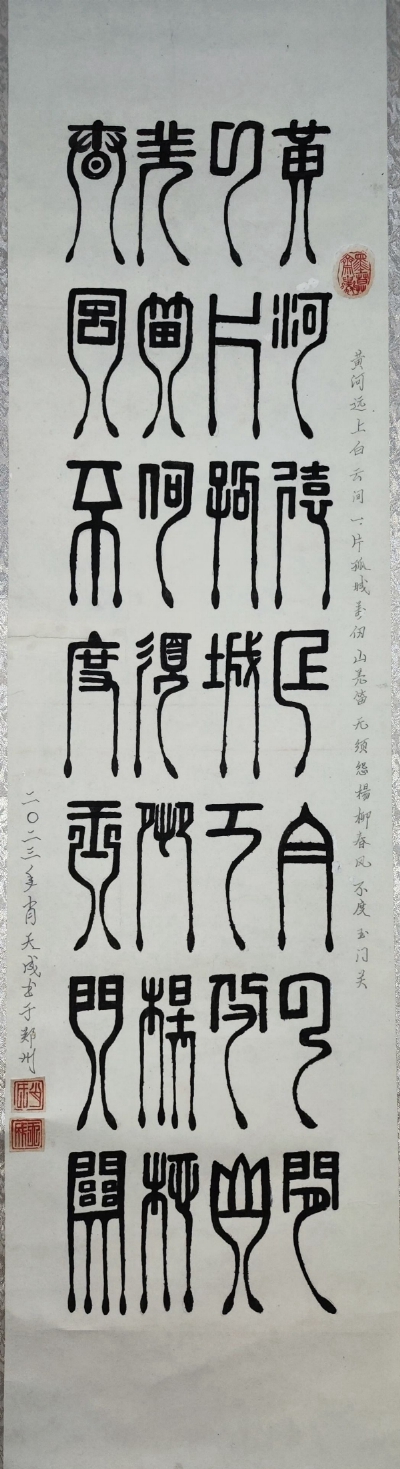 黄河远上白云间一片孤城万仞山羌笛无须怨楊柳春风不度玉门关
黃河遠上白雲間
一片孤城萬仞山
羌笛何須怨楊柳
春風不度玉門關
二〇二三年肖天成书于郑州